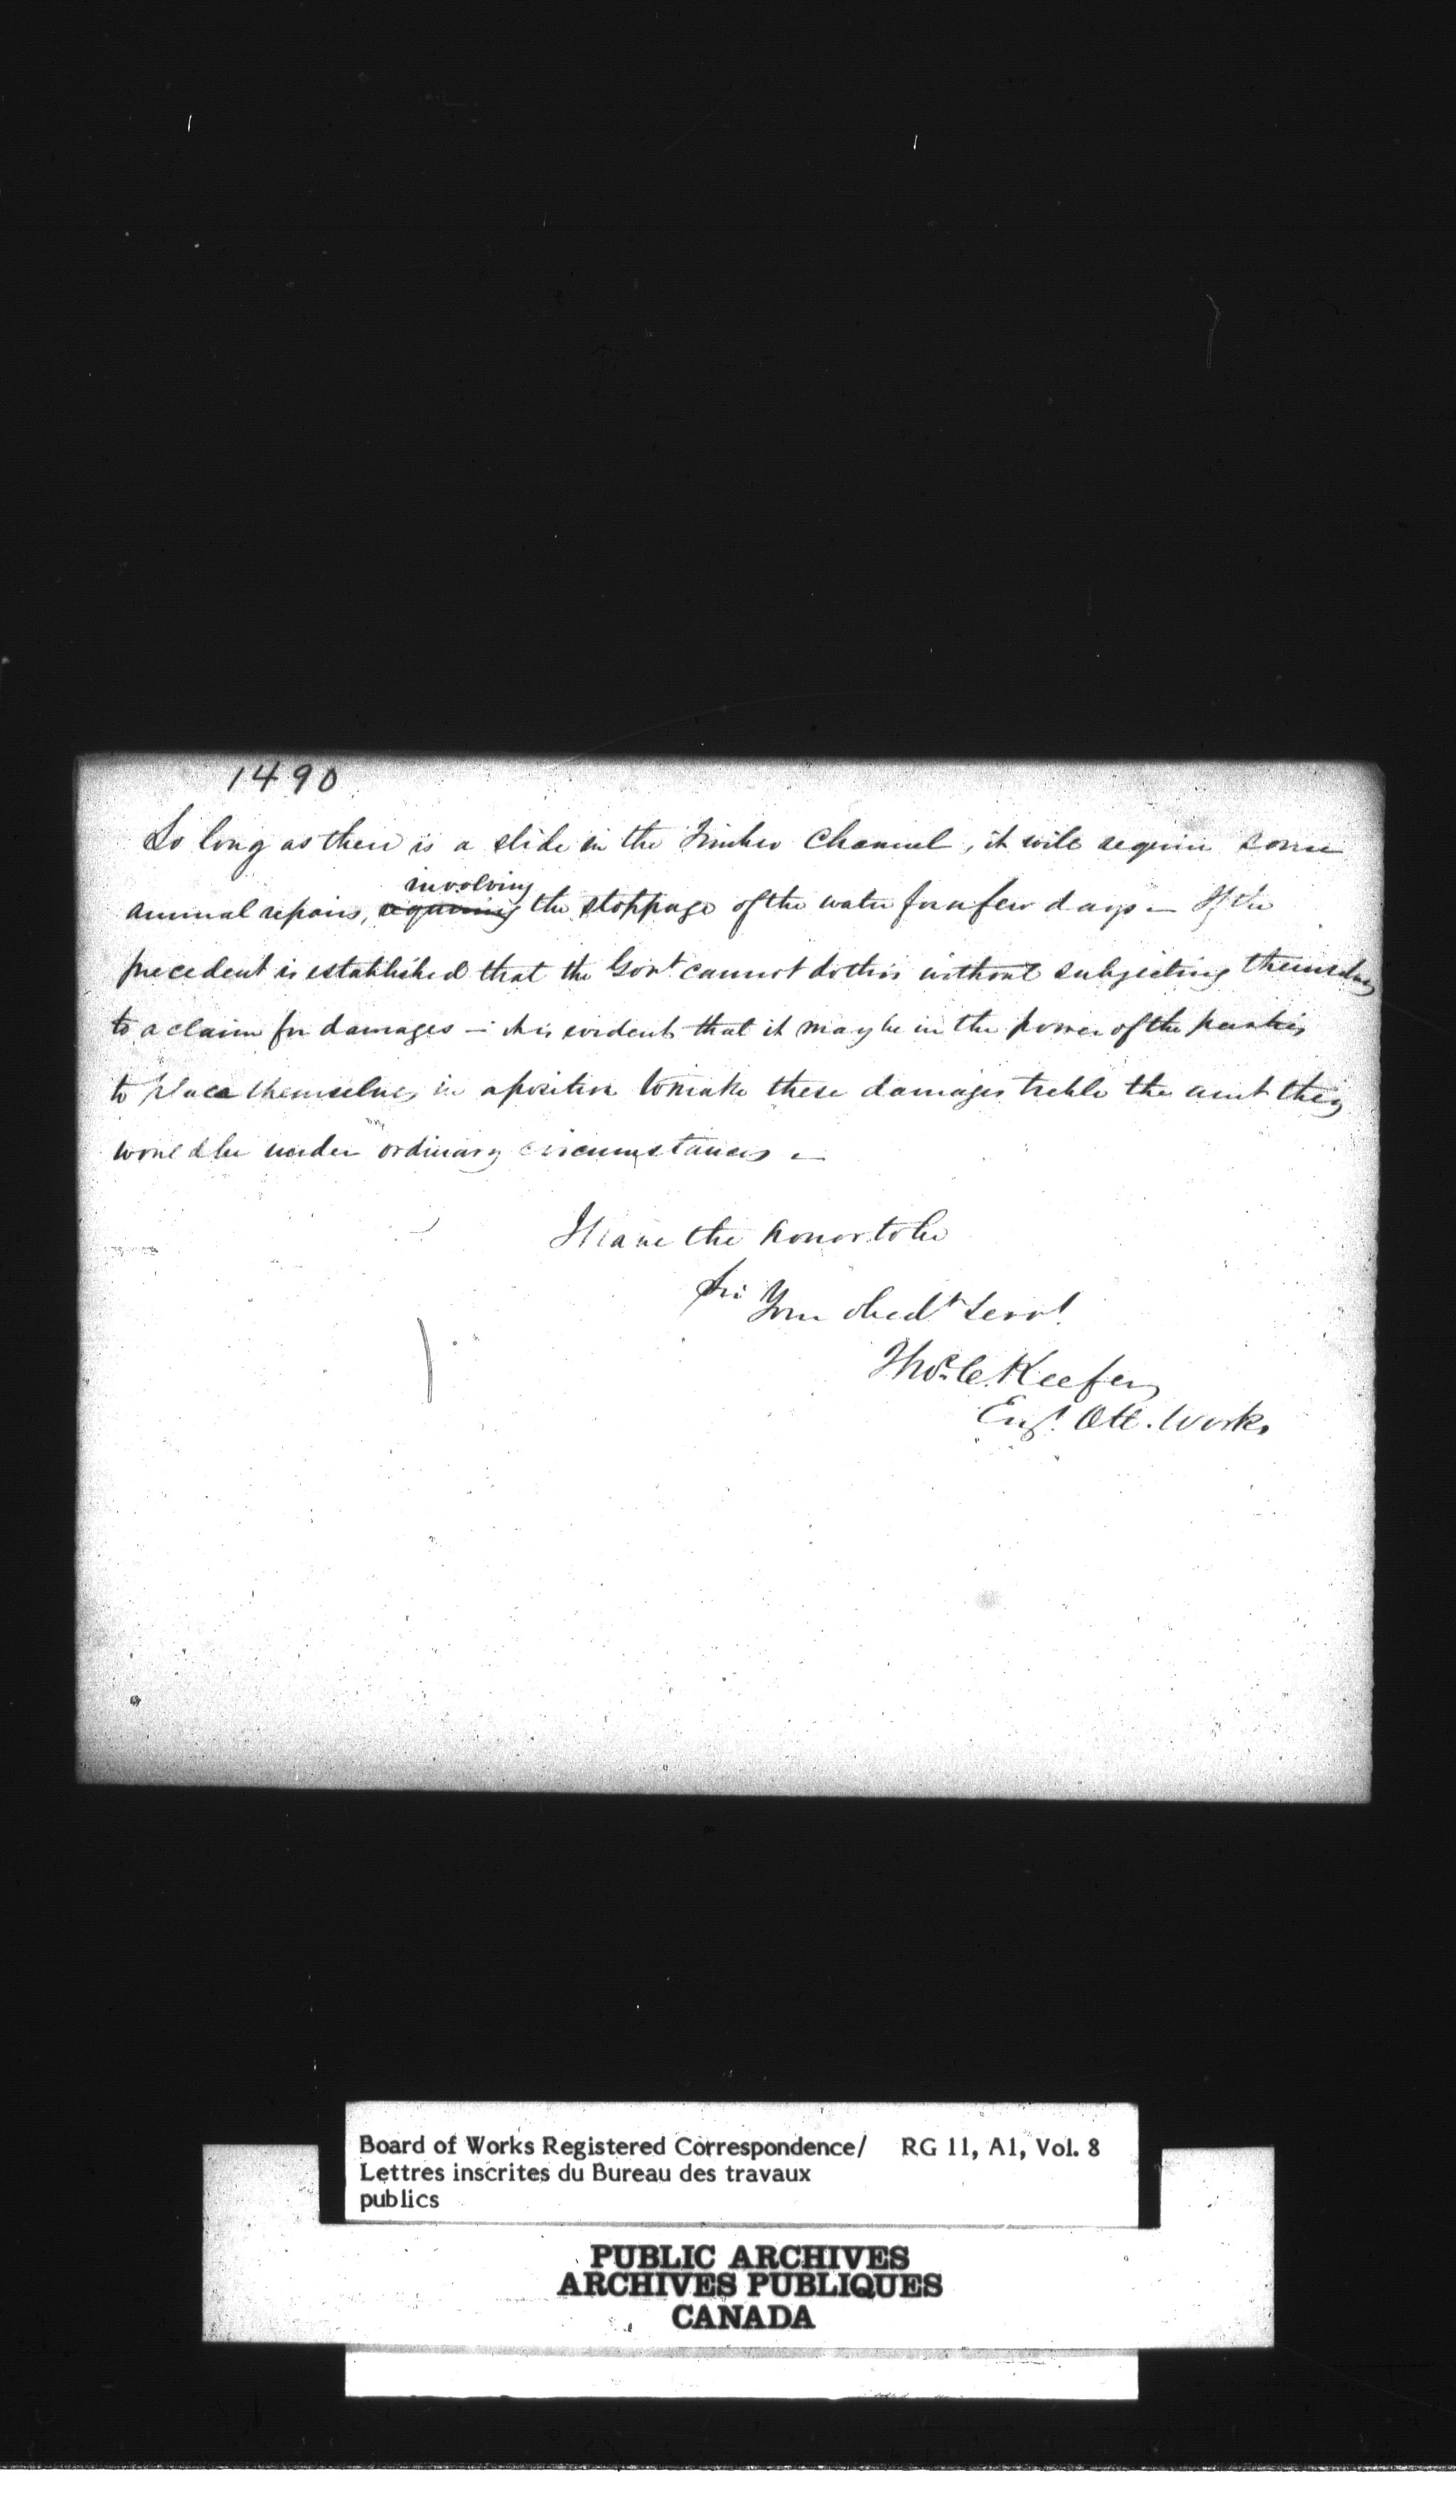 1490
So long as there is a slide in the Timber Channel, it will require some
involving
annual repairs, requiring the stoppage of the water for a few days — If the
precedent is established that the Govt cannot do this without subjecting themselves
to a claim for damages — it is evident that it may be in the power of the parties
to place themselves in a position to make these damages treble the amt they
would be under ordinary circumstances —
I have the honor to be
Sir Your obedt Servt
Thos. C. Keefer
Engr. Ott. Works
Board of Works Registered Correspondence/ RG 11, A1, Vol. 8
Lettres inscrites du Bureau des travaux
publics
PUBLIC ARCHIVES
ARCHIVES PUBLIQUES
CANADA